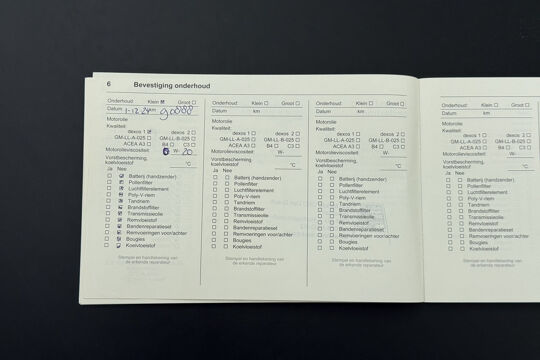 6 Bevestiging onderhoud
Onderhoud: Klein Groot
Datum 1-12 24 km 90000
Motorolie
Kwaliteit:
dexos 1 dexos 2
GM-LL-A-025 GM-LL-B-025
ACEA A3 B4 C3
Motorolieviscositeit: W- 20
Vorstbescherming,
koelvloeistof °C
Ja Nee
Batterij (handzender)
Pollenfilter
Luchtfilterelement
Poly-V-riem
Tandriem
Brandstoffilter
Transmissieolie
Remvloeistof
Bandenreparatieset
Remvoeringen voor/achter
Bougies
Koelvloeistof
Stempel en handtekening van
de erkende reparateur
Onderhoud: Klein Groot
Datum km
Motorolie
Kwaliteit:
dexos 1 dexos 2
GM-LL-A-025 GM-LL-B-025
ACEA A3 B4 C3
Motorolieviscositeit: W-
Vorstbescherming,
koelvloeistof °C
Ja Nee
Batterij (handzender)
Pollenfilter
Luchtfilterelement
Poly-V-riem
Tandriem
Brandstoffilter
Transmissieolie
Remvloeistof
Bandenreparatieset
Remvoeringen voor/achter
Bougies
Koelvloeistof
Stempel en handtekening van
de erkende reparateur
Onderhoud: Klein Groot
Datum km
Motorolie
Kwaliteit:
dexos 1 dexos 2
GM-LL-A-025 GM-LL-B-025
ACEA A3 B4 C3
Motorolieviscositeit: W-
Vorstbescherming,
koelvloeistof °C
Ja Nee
Batterij (handzender)
Pollenfilter
Luchtfilterelement
Poly-V-riem
Tandriem
Brandstoffilter
Transmissieolie
Remvloeistof
Bandenreparatieset
Remvoeringen voor/achter
Bougies
Koelvloeistof
Stempel en handtekening van
de erkende reparateur
Onderhoud: Klein Groot
Datum km
Motorolie
Kwaliteit:
dexos 1 dexos 2
GM-LL-A-025 GM-LL-B-025
ACEA A3 B4 C3
Motorolieviscositeit: W-
Vorstbescherming,
koelvloeistof °C
Ja Nee
Batterij (handzender)
Pollenfilter
Luchtfilterelement
Poly-V-riem
Tandriem
Brandstoffilter
Transmissieolie
Remvloeistof
Bandenreparatieset
Remvoeringen voor/achter
Bougies
Koelvloeistof
Stempel en handtekening van
de erkende reparateur